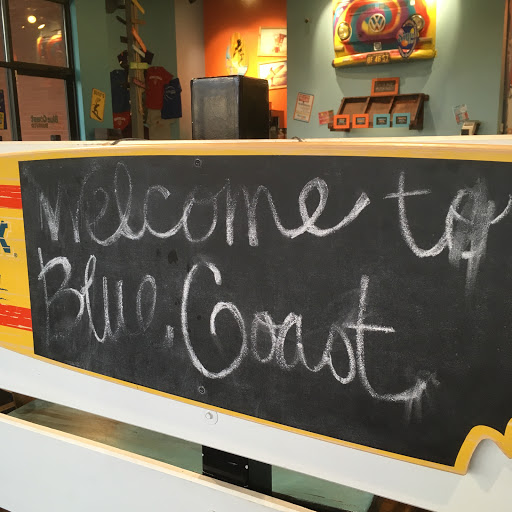 Welcome to
Blue Coast